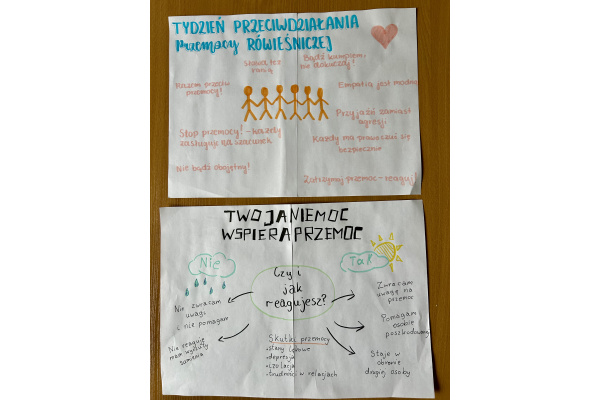 TYDZIEŃ PRZECIWDZIAŁANIA
Przemocy RÓWIEŚNICZEJ
Słowa też
ranią
Bądź kumplem,
nie dokuczaj!
Razem przeciw
przemocy!
Empatia jest modna
Przyjaźń zamiast
agresji
Stop przemocy! - każdy
zasługuje na szacunek
Każdy ma prawo czuć się
bezpiecznie
Nie bądź obojętny!
Zatrzymaj przemoc - reaguj!
TWOJA NIEMOC
WSPIERA PRZEMOC
Nie
Tak
Czy i
jak
reagujesz?
Nie zwracam
uwagi
i nie pomagam
Nie reaguję
mam wyrzuty
sumienia
Zwracam
uwagę na
przemoc
Pomagam
osobie
poszkodowanej
Staję w
obronie
drugiej osoby
Skutki przemocy
•stany lękowe
•depresja
•izolacja
•trudności w relacjach